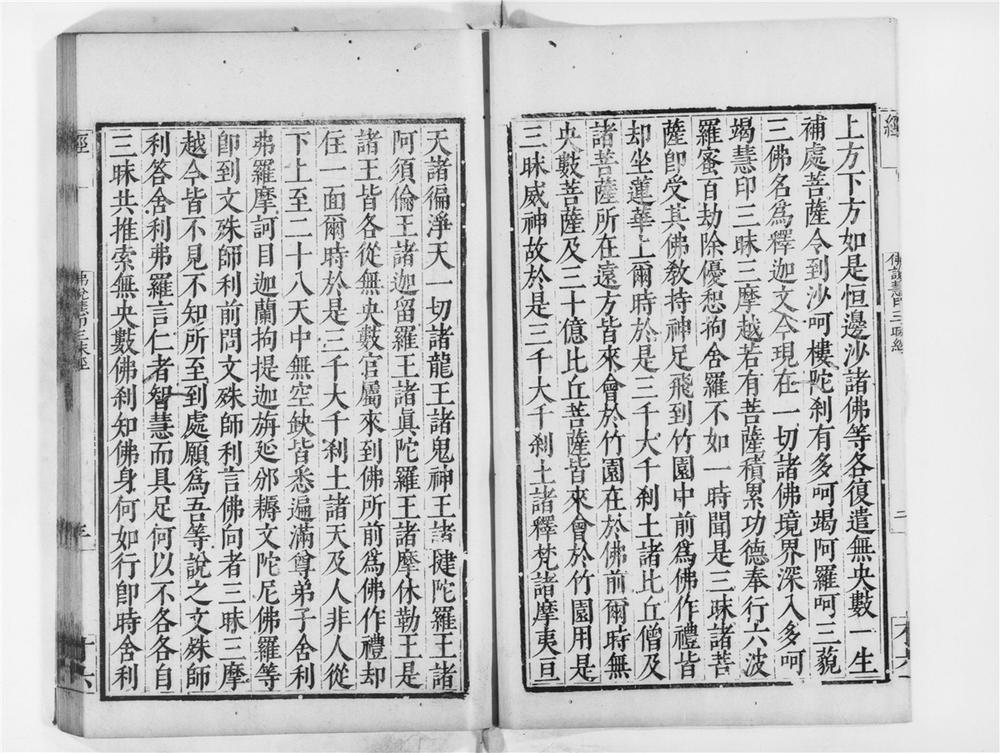 上方下方如是恒邊沙諸佛等各復遣無央數一生
補處菩薩令到沙呵樓陀刹有多呵竭阿羅呵三藐
三佛名爲釋迦文今現在一切諸佛境界深入多呵
竭慧印三昧三摩越若有菩薩積累功德奉行六波
羅蜜百劫除漚惒拘舍羅不如一時聞是三昧諸菩
薩卽受其佛敎持神足飛到竹園中前爲佛作禮皆
却坐蓮華上爾時於是三千大千刹土諸比丘僧及
諸菩薩所在遠方皆來會於竹園在於佛前爾時無
央數菩薩及三十億比丘菩薩皆來會於竹園用是
三昧威神故於是三千大千刹土諸釋梵諸摩夷亘
天諸徧淨天一切諸龍王諸鬼神王諸揵陀羅王諸
阿須倫王諸迦留羅王諸眞陀羅王諸摩休勒王是
諸王皆各從無央數官屬來到佛所前爲佛作禮却
住一面爾時於是三千大千刹土諸天及人非人從
下上至二十八天中無空缺皆悉遍滿尊弟子舍利
弗羅摩訶目迦蘭拘提迦旃延邠耨文陀尼佛羅等
卽到文殊師利前問文殊師利言佛向者三昧三摩
越今皆不見不知所至到處願爲吾等說之文殊師
利答舍利弗羅言仁者智慧而具足何以不各各自
三昧共推索無央數佛刹知佛身何如行卽時舍利
經
佛說慧印三昧經
二
經
佛說慧印三昧經
三